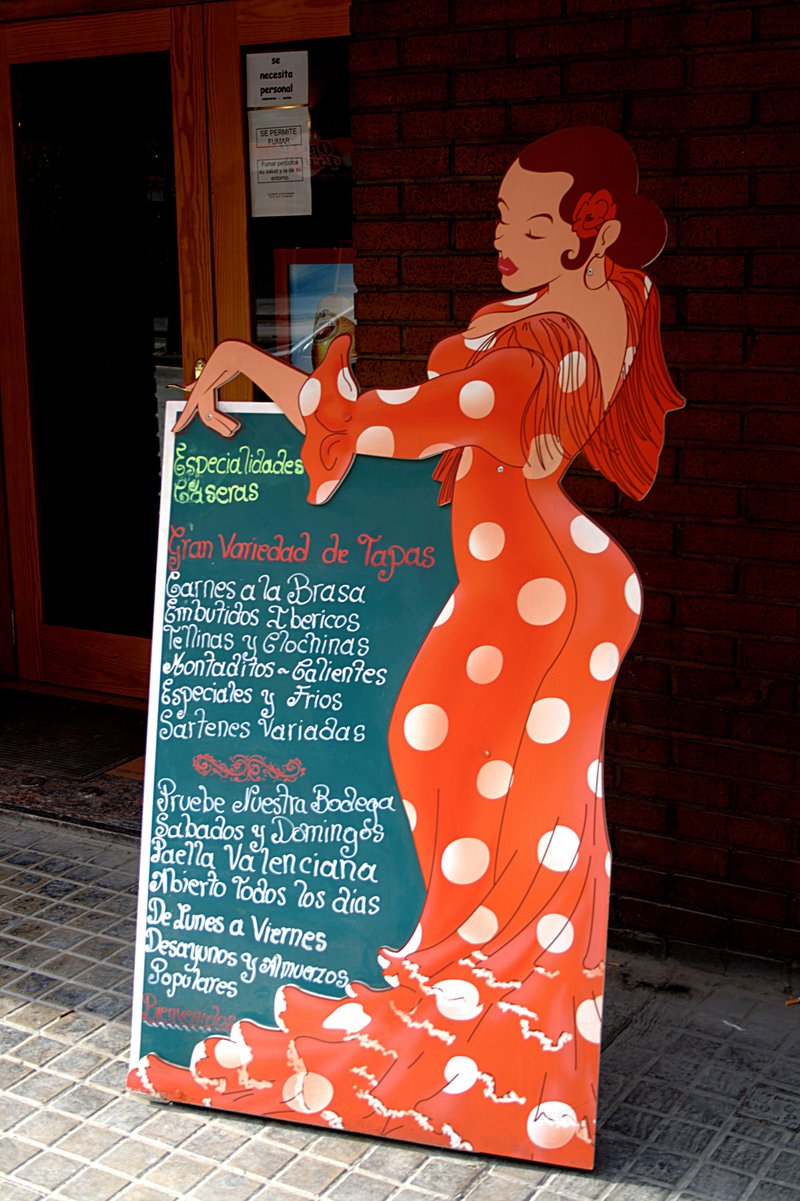 se
necesita
personal
SE PERMITE
FUMAR
Fumar perjudica
su salud y la de su
entorno.
Especialidades
Caseras
Gran Variedad de Tapas
Carnes a la Brasa
Embutidos Ibericos
Tellinas y Clochinas
Montaditos ~ Calientes
Especiales y Frios
Sartenes Variadas
Pruebe Nuestra Bodega
Sabados y Domingos
Paella Valenciana
Abierto Todos los dias
De Lunes a Viernes
Desayunos y Almuerzos
Populares
Bienvenidos